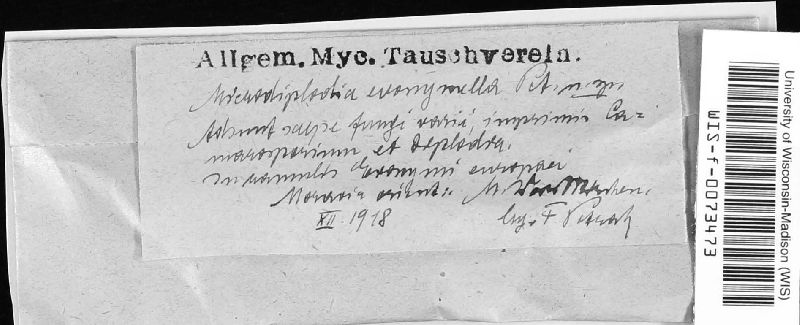 Allgem. Myc. Tauschverein.
Microdiplodia evonymella Pet. n. sp.
Adsunt saepe fungi varii, imprimis Ca-
marosporium et Diplodia.
In ramulis Evonymi europaei
Moravia orient.: M.
XII. 1918
leg. F Petrak
University of Wisconsin-Madison (WIS)
WIS-f-0073473